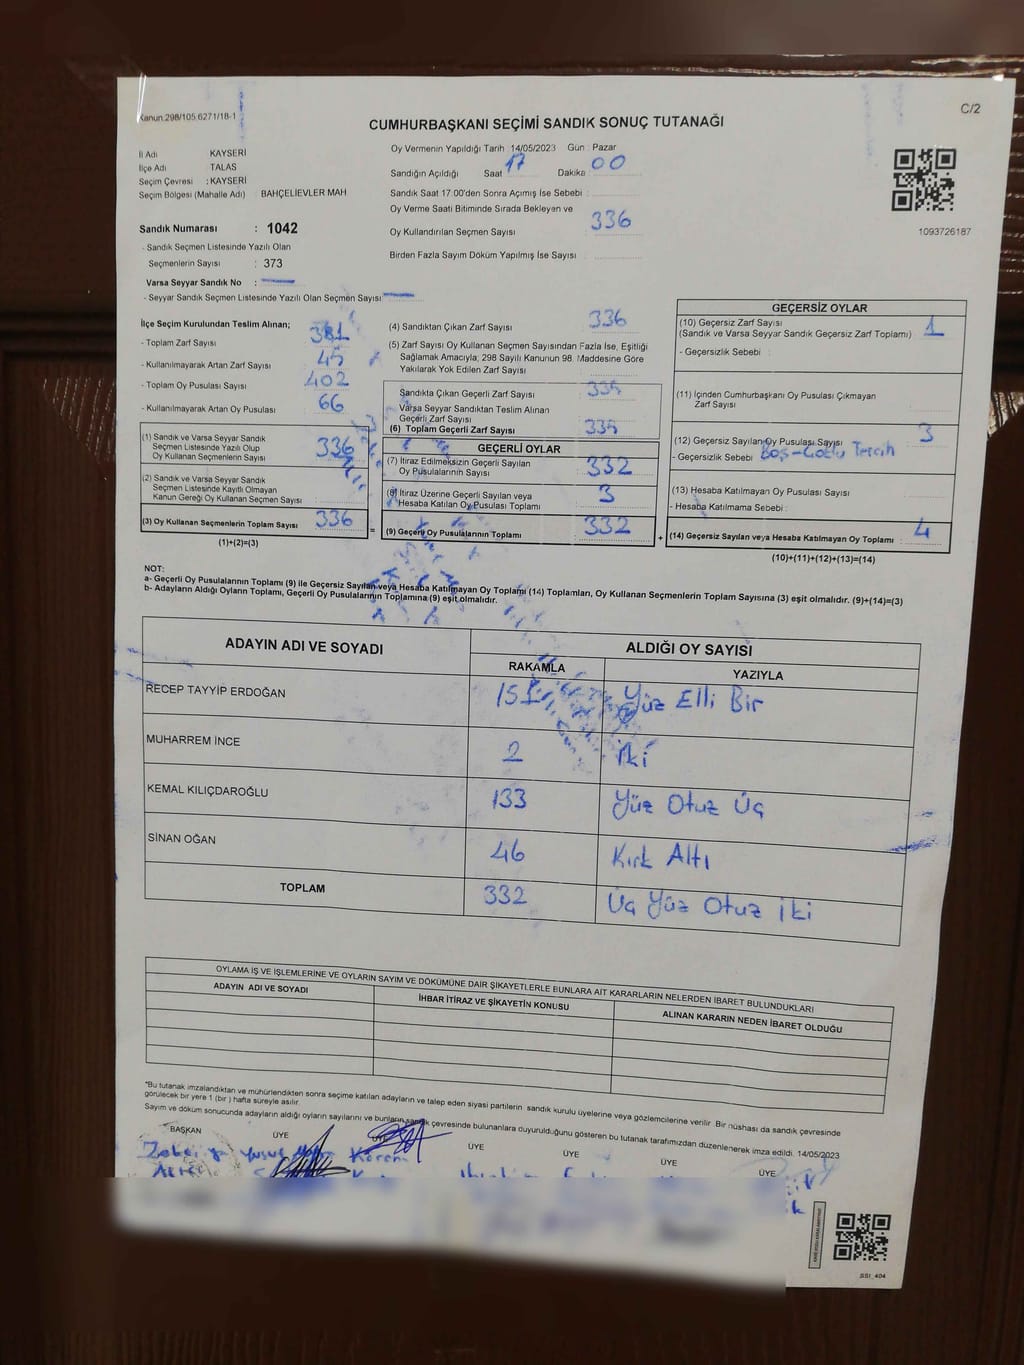 Kanun:298/105,6271/18-1
C/2
CUMHURBAŞKANI SEÇİMİ SANDIK SONUÇ TUTANAĞI
İl Adı KAYSERİ
İlçe Adı TALAS
Seçim Çevresi : KAYSERİ
Seçim Bölgesi (Mahalle Adı) BAHÇELİEVLER MAH
Oy Vermenin Yapıldığı Tarih 14/05/2023 Gün : Pazar
Sandığın Açıldığı Saat 17 Dakika 00
Sandık Saat 17:00'den Sonra Açımış İse Sebebi :
Oy Verme Saati Bitiminde Sırada Bekleyen ve
Oy Kullandırılan Seçmen Sayısı 336
Birden Fazla Sayım Döküm Yapılmış İse Sayısı :
1093726187
Sandık Numarası : 1042
- Sandık Seçmen Listesinde Yazılı Olan
Seçmenlerin Sayısı : 373
Varsa Seyyar Sandık No :
- Seyyar Sandık Seçmen Listesinde Yazılı Olan Seçmen Sayısı
İlçe Seçim Kurulundan Teslim Alınan;
- Toplam Zarf Sayısı 381
- Kullanılmayarak Artan Zarf Sayısı 45
- Toplam Oy Pusulası Sayısı 402
- Kullanılmayarak Artan Oy Pusulası 66
(1) Sandık ve Varsa Seyyar Sandık
Seçmen Listesinde Yazılı Olup
Oy Kullanan Seçmenlerin Sayısı 336
(2) Sandık ve Varsa Seyyar Sandık
Seçmen Listesinde Kayıtlı Olmayan
Kanun Gereği Oy Kullanan Seçmen Sayısı
(3) Oy Kullanan Seçmenlerin Toplam Sayısı 336
(1)+(2)=(3)
=
(4) Sandıktan Çıkan Zarf Sayısı 336
(5) Zarf Sayısı Oy Kullanan Seçmen Sayısından Fazla İse, Eşitliği
Sağlamak Amacıyla; 298 Sayılı Kanunun 98. Maddesine Göre
Yakılarak Yok Edilen Zarf Sayısı
Sandıkta Çıkan Geçerli Zarf Sayısı 335
Varsa Seyyar Sandıktan Teslim Alınan
Geçerli Zarf Sayısı
(6) Toplam Geçerli Zarf Sayısı 335
GEÇERLİ OYLAR
(7) İtiraz Edilmeksizin Geçerli Sayılan
Oy Pusulalarının Sayısı 332
(8) İtiraz Üzerine Geçerli Sayılan veya
Hesaba Katılan Oy Pusulası Toplamı 3
(9) Geçerli Oy Pusulalarının Toplamı 332
+
GEÇERSİZ OYLAR
(10) Geçersiz Zarf Sayısı
(Sandık ve Varsa Seyyar Sandık Geçersiz Zarf Toplamı) 1
- Geçersizlik Sebebi :
(11) İçinden Cumhurbaşkanı Oy Pusulası Çıkmayan
Zarf Sayısı
(12) Geçersiz Sayılan Oy Pusulası Sayısı 3
- Geçersizlik Sebebi Boş-Çoklu Tercih
(13) Hesaba Katılmayan Oy Pusulası Sayısı
- Hesaba Katılmama Sebebi :
(14) Geçersiz Sayılan veya Hesaba Katılmayan Oy Toplamı 4
(10)+(11)+(12)+(13)=(14)
NOT:
a- Geçerli Oy Pusulalarının Toplamı (9) ile Geçersiz Sayılan veya Hesaba Katılmayan Oy Toplamı (14) Toplamları, Oy Kullanan Seçmenlerin Toplam Sayısına (3) eşit olmalıdır. (9)+(14)=(3)
b- Adayların Aldığı Oyların Toplamı, Geçerli Oy Pusulalarının Toplamına (9) eşit olmalıdır.
ADAYIN ADI VE SOYADI
ALDIĞI OY SAYISI
RAKAMLA YAZIYLA
RECEP TAYYİP ERDOĞAN 151 Yüz Elli Bir
MUHARREM İNCE 2 İki
KEMAL KILIÇDAROĞLU 133 Yüz Otuz Üç
SİNAN OĞAN 46 Kırk Altı
TOPLAM 332 Üç Yüz Otuz İki
OYLAMA İŞ VE İŞLEMLERİNE VE OYLARIN SAYIM VE DÖKÜMÜNE DAİR ŞİKAYETLERLE BUNLARA AİT KARARLARIN NELERDEN İBARET BULUNDUKLARI
ADAYIN ADI VE SOYADI İHBAR İTİRAZ VE ŞİKAYETİN KONUSU ALINAN KARARIN NEDEN İBARET OLDUĞU
*Bu tutanak imzalandıktan ve mühürlendikten sonra seçime katılan adayların ve talep eden siyasi partilerin sandık kurulu üyelerine veya gözlemcilerine verilir. Bir nüshası da sandık çevresinde
görülecek bir yere 1 (bir ) hafta süreyle asılır.
Sayım ve döküm sonucunda adayların aldığı oyların sayılarını ve bunların sandık çevresinde bulunanlara duyurulduğunu gösteren bu tutanak tarafımızdan düzenlenerek imza edildi. 14/05/2023
BAŞKAN ÜYE ÜYE ÜYE ÜYE ÜYE ÜYE
SSI_404